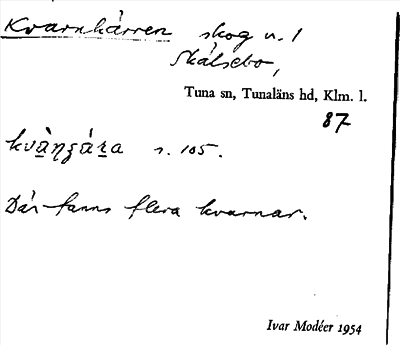 Kvarnkärren skog u. 1
Skälsebo,
Tuna sn, Tunaläns hd, Klm. l.
87
s. 105.
Där fanns flera kvarnar.
Ivar Modéer 1954